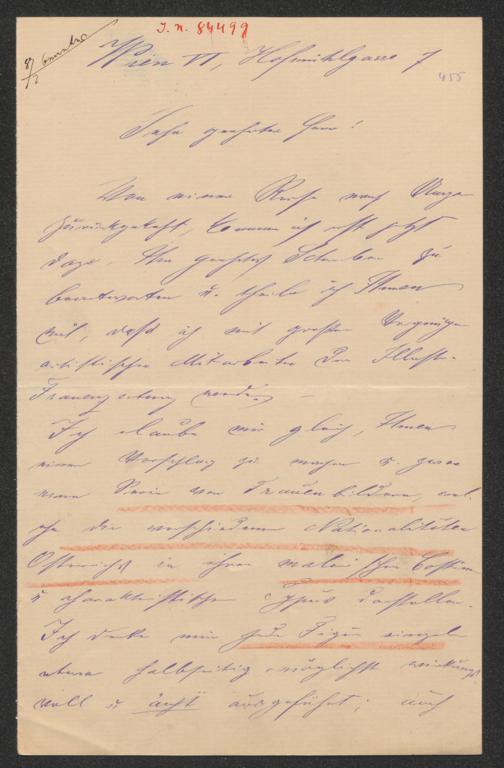 J. n. 84499
Wien VI, Hofmühlgasse 7
455
Sehr geehrter Herr!
Von einer Reise nach
zurückgekehrt, komme ich erst jetzt
dazu, Ihr geehrtes Schreiben zu
beantworten u. theile ich Ihnen
mit, dass ich mit großem Vergnügen
artistischer Mitarbeiter der Illustr.
Frauenzeitung werde. –
Ich erlaube mir gleich, Ihnen
einen Vorschlag zu machen u. zwar
eine Serie von Frauenbildern, wel-
che die verschiedenen Nationalitäten
Österreichs in ihren malerischen Costümen
u charakteristischen Typus darstellen.
Ich denke mir jede Figur einzeln
etwa halbseitig möglichst wirkungs-
voll u ächt ausgeführt; auch